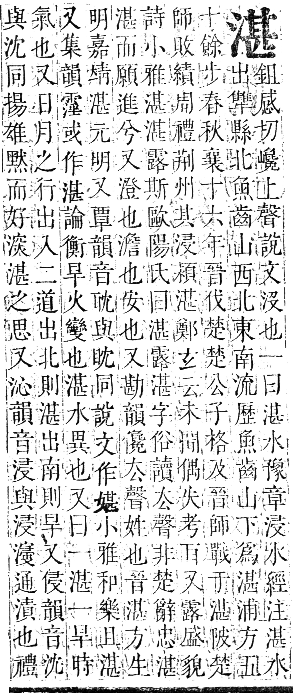 湛
鉏感切巉上聲說文沒也一曰湛水豫章浸水經注湛水
出犨縣北魚齒山西北東南流歷魚齒山下為湛浦方五
十餘步春秋襄十六年晉伐楚楚公子格及晉師戰于湛陂楚
師敗績周禮荆州其浸潁湛鄭玄云未聞偶失考耳又露盛貌
詩小雅湛湛露斯歐陽氏曰湛露湛字俗讀去聲非楚辭忠湛
湛而願進兮又澄也澹也安也又勘韻儳去聲姓也晉湛方生
明嘉靖湛元明又覃韻音耽與眈同說文作媅小雅和樂且湛
又集韻霮或作湛論衡旱火變也湛水異也又曰一湛一旱時
氣也又日月之行出入二道出北則湛出南則旱又侵韻音沈
與沈同揚雄黙而好湥湛之思又沁韻音浸與浸濅通漬也禮